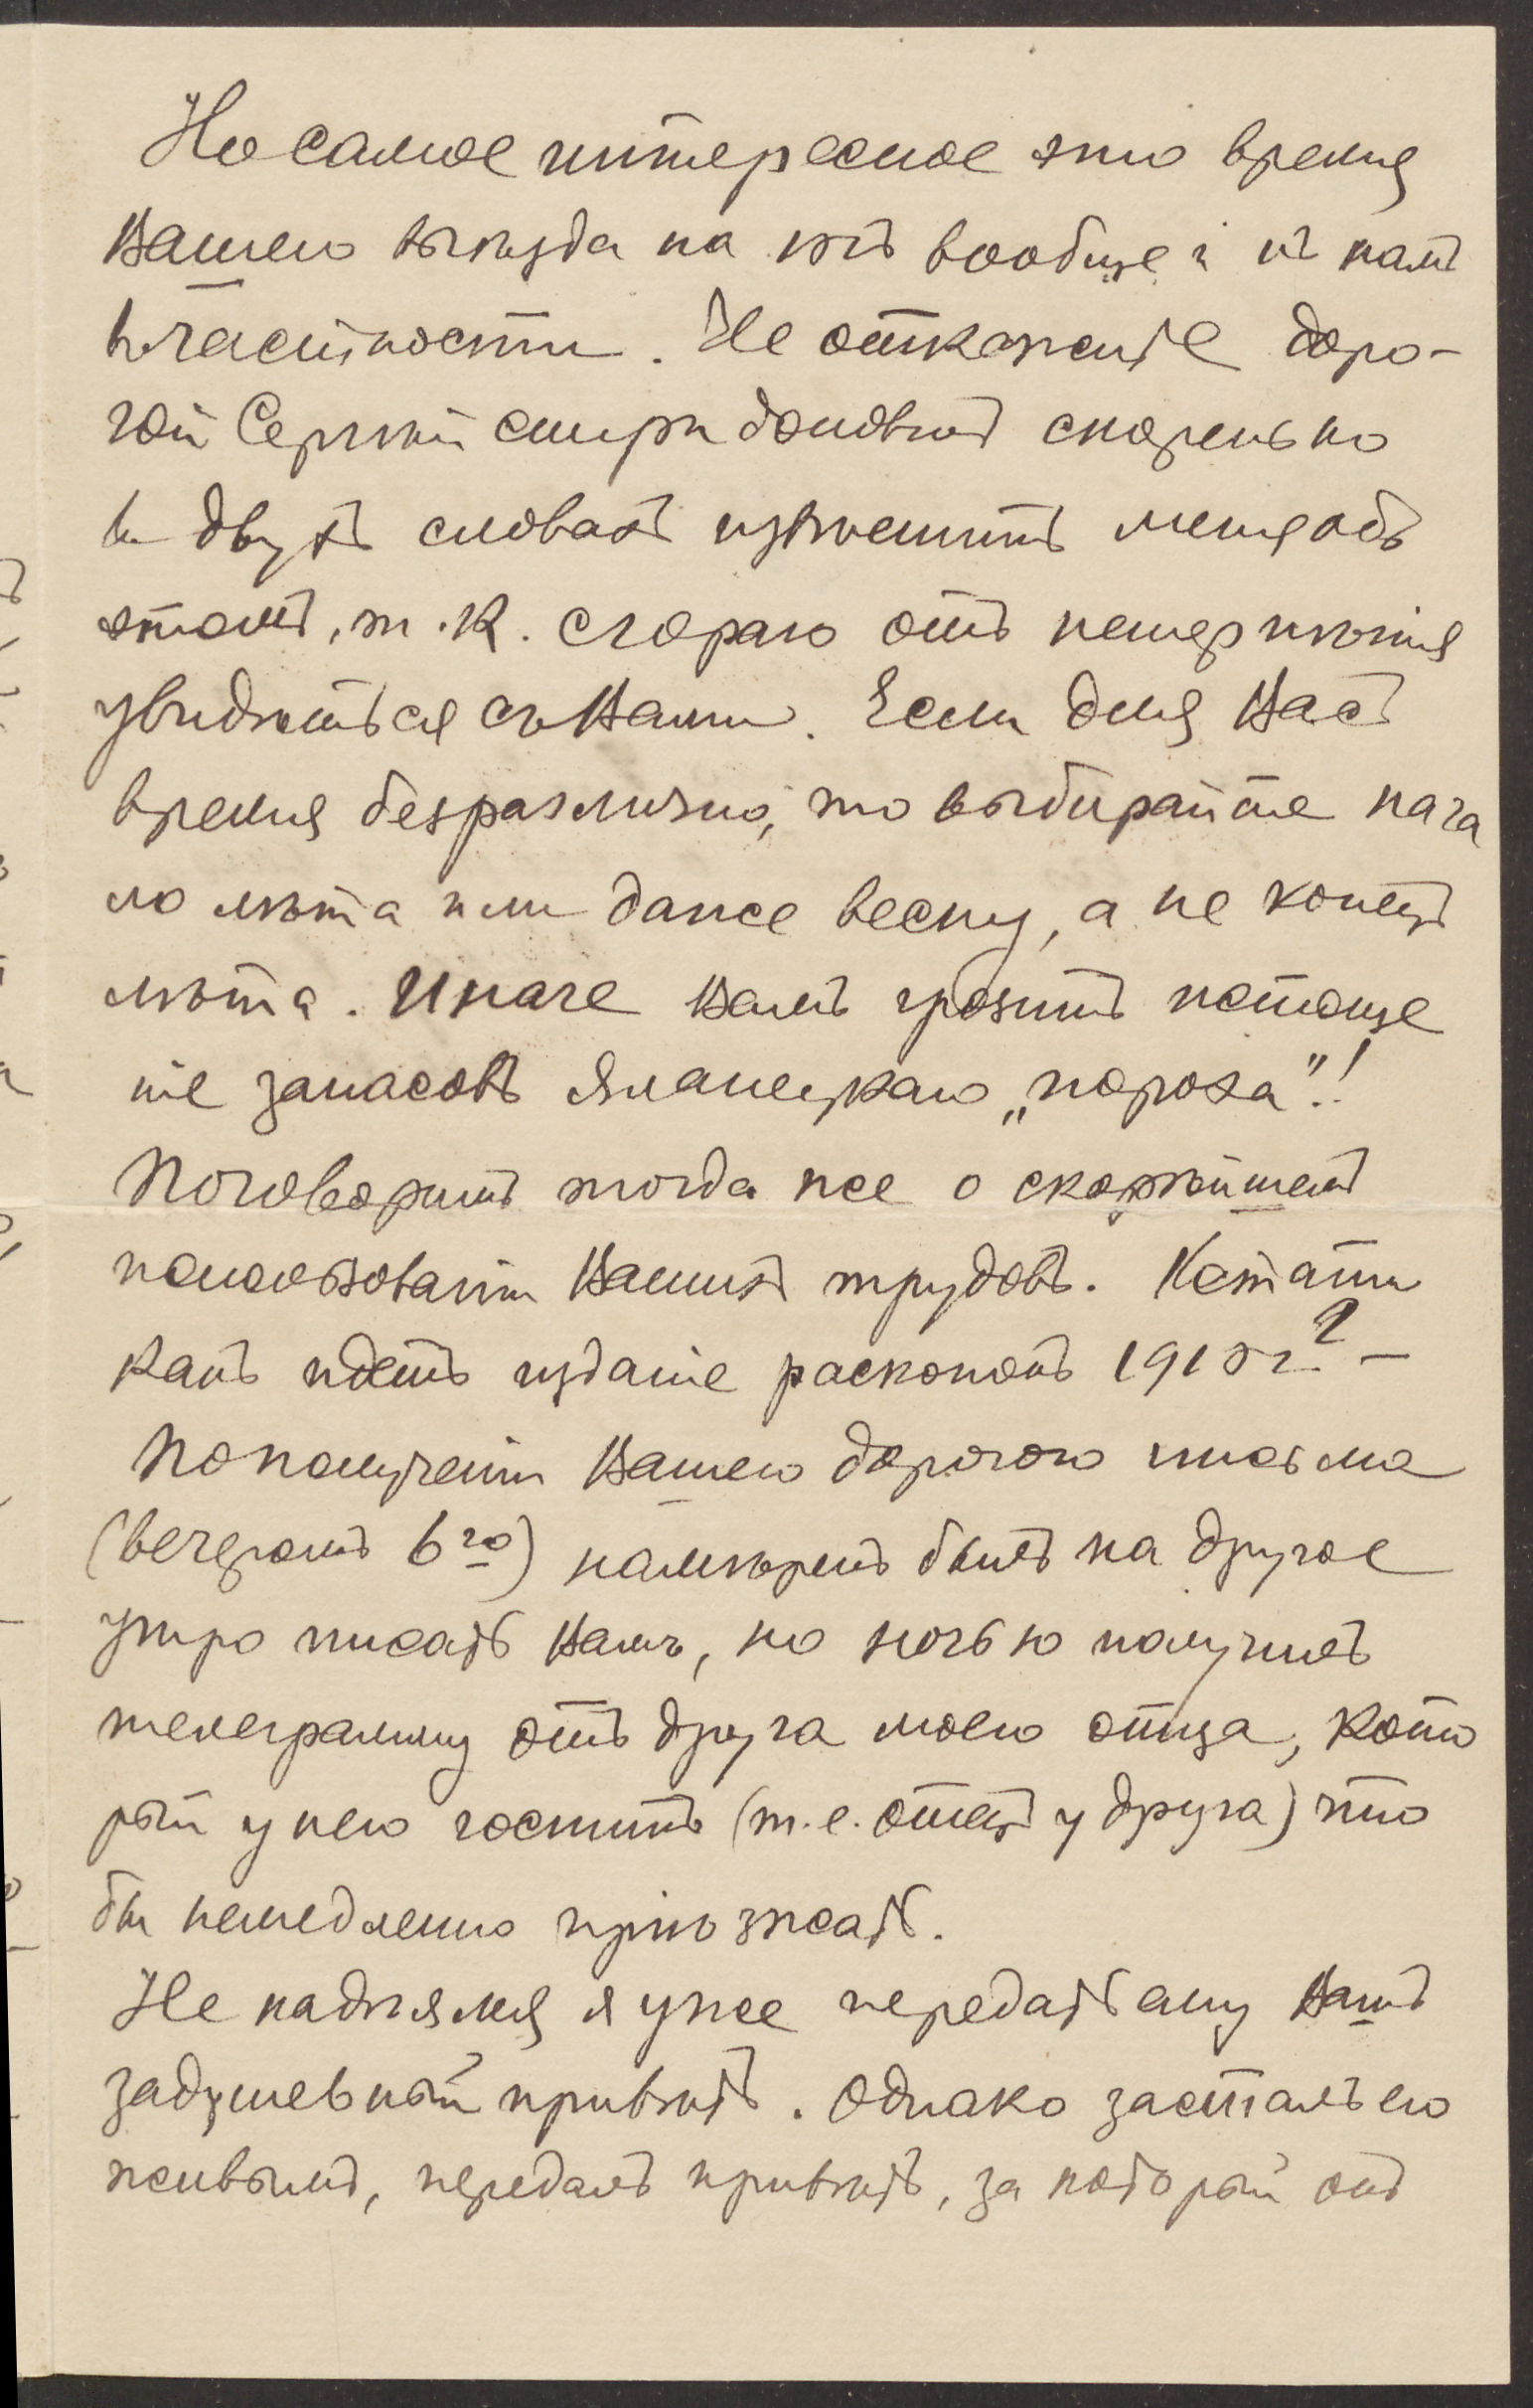 Но самое интересное это время
Вашего выѣзда на югъ вообще и къ намъ
въ частности. Не откажите доро-
гой Сергѣй Спиридоновичъ скоренько
въ двухъ словахъ извѣстить меня объ
этомъ, т.к. сгораю отъ нетерпѣнія
увидѣться съ Вами. Если для Васъ
время безразлично, то выбирайте нача
ло лѣта или даже весну, а не конецъ
лѣта. Иначе Вамъ грозитъ истоще
ніе запасовъ „пороха"!
Поговоримъ тогда же о скорѣйшемъ
использованіи Вашихъ трудовъ. Кстати
какъ идетъ изданіе раскопокъ 1915 г.? –
По полученіи Вашего дорогого письма
(вечеромъ 6го) намѣренъ былъ на другое
утро писать Вамъ, но ночью получилъ
телеграмму отъ друга моего отца, кото
рый у него гоститъ (т.е. отецъ у друга) что
бы немедленно пріѣзжать.
Не надѣялся я уже передать ему Вашъ
задушевный привѣтъ. Однако засталъ его
живымъ, передалъ привѣтъ, за который онъ